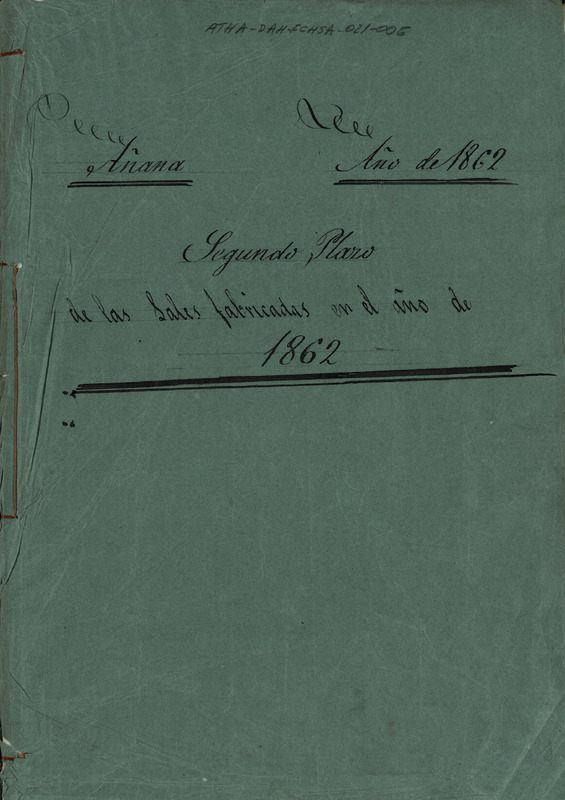 ATHA-DAH-FCHSA-021-006
Añana
Año de 1862
Segundo Plazo
de las Sales fabricadas en el año de
1862